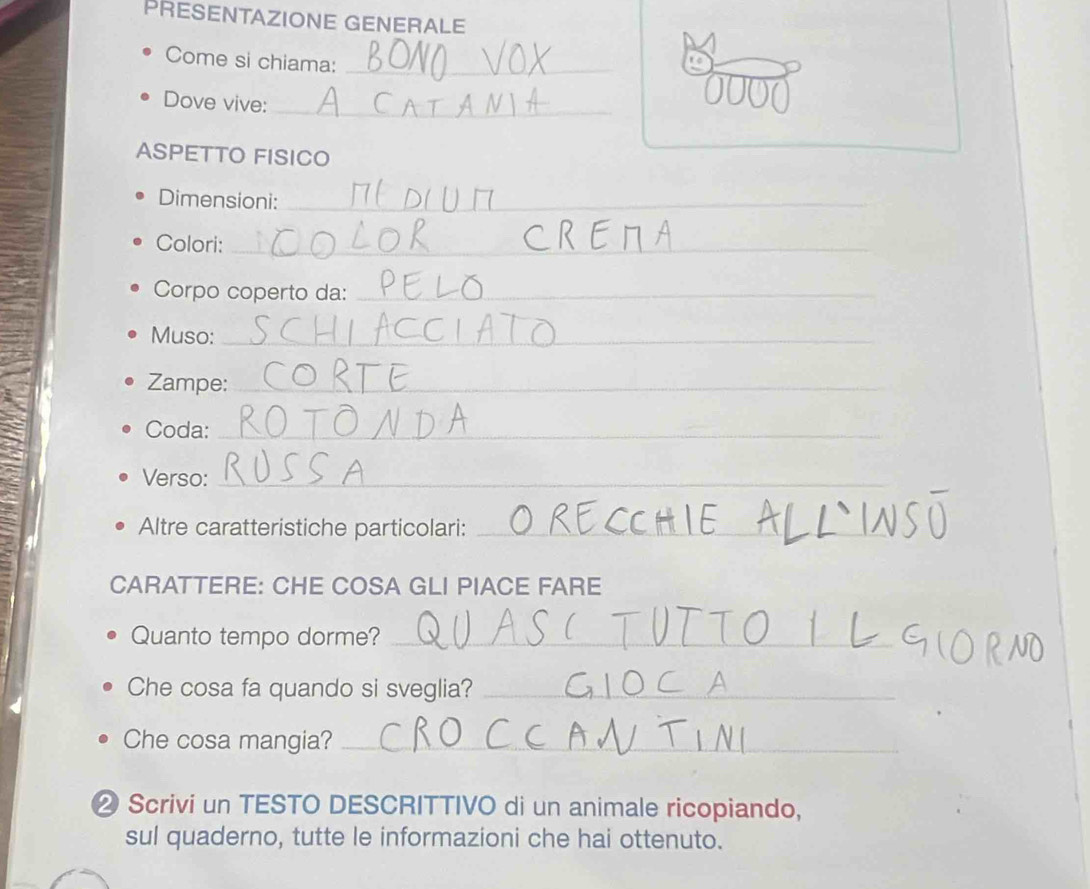 PRESENTAZIONE GENERALE
• Come si chiama: BONO VOX
• Dove vive: A CATANIA
ASPETTO FISICO
• Dimensioni: MEDIUM
• Colori: COLOR CREMA
• Corpo coperto da: PELO
• Muso: SCHIACCIATO
• Zampe: CORTE
• Coda: ROTONDA
• Verso: RUSSA
• Altre caratteristiche particolari: ORECCHIE ALL'INSÙ
CARATTERE: CHE COSA GLI PIACE FARE
• Quanto tempo dorme? QUASI TUTTO IL GIORNO
• Che cosa fa quando si sveglia? GIOCA
• Che cosa mangia? CROCCANTINI
2 Scrivi un TESTO DESCRITTIVO di un animale ricopiando,
sul quaderno, tutte le informazioni che hai ottenuto.